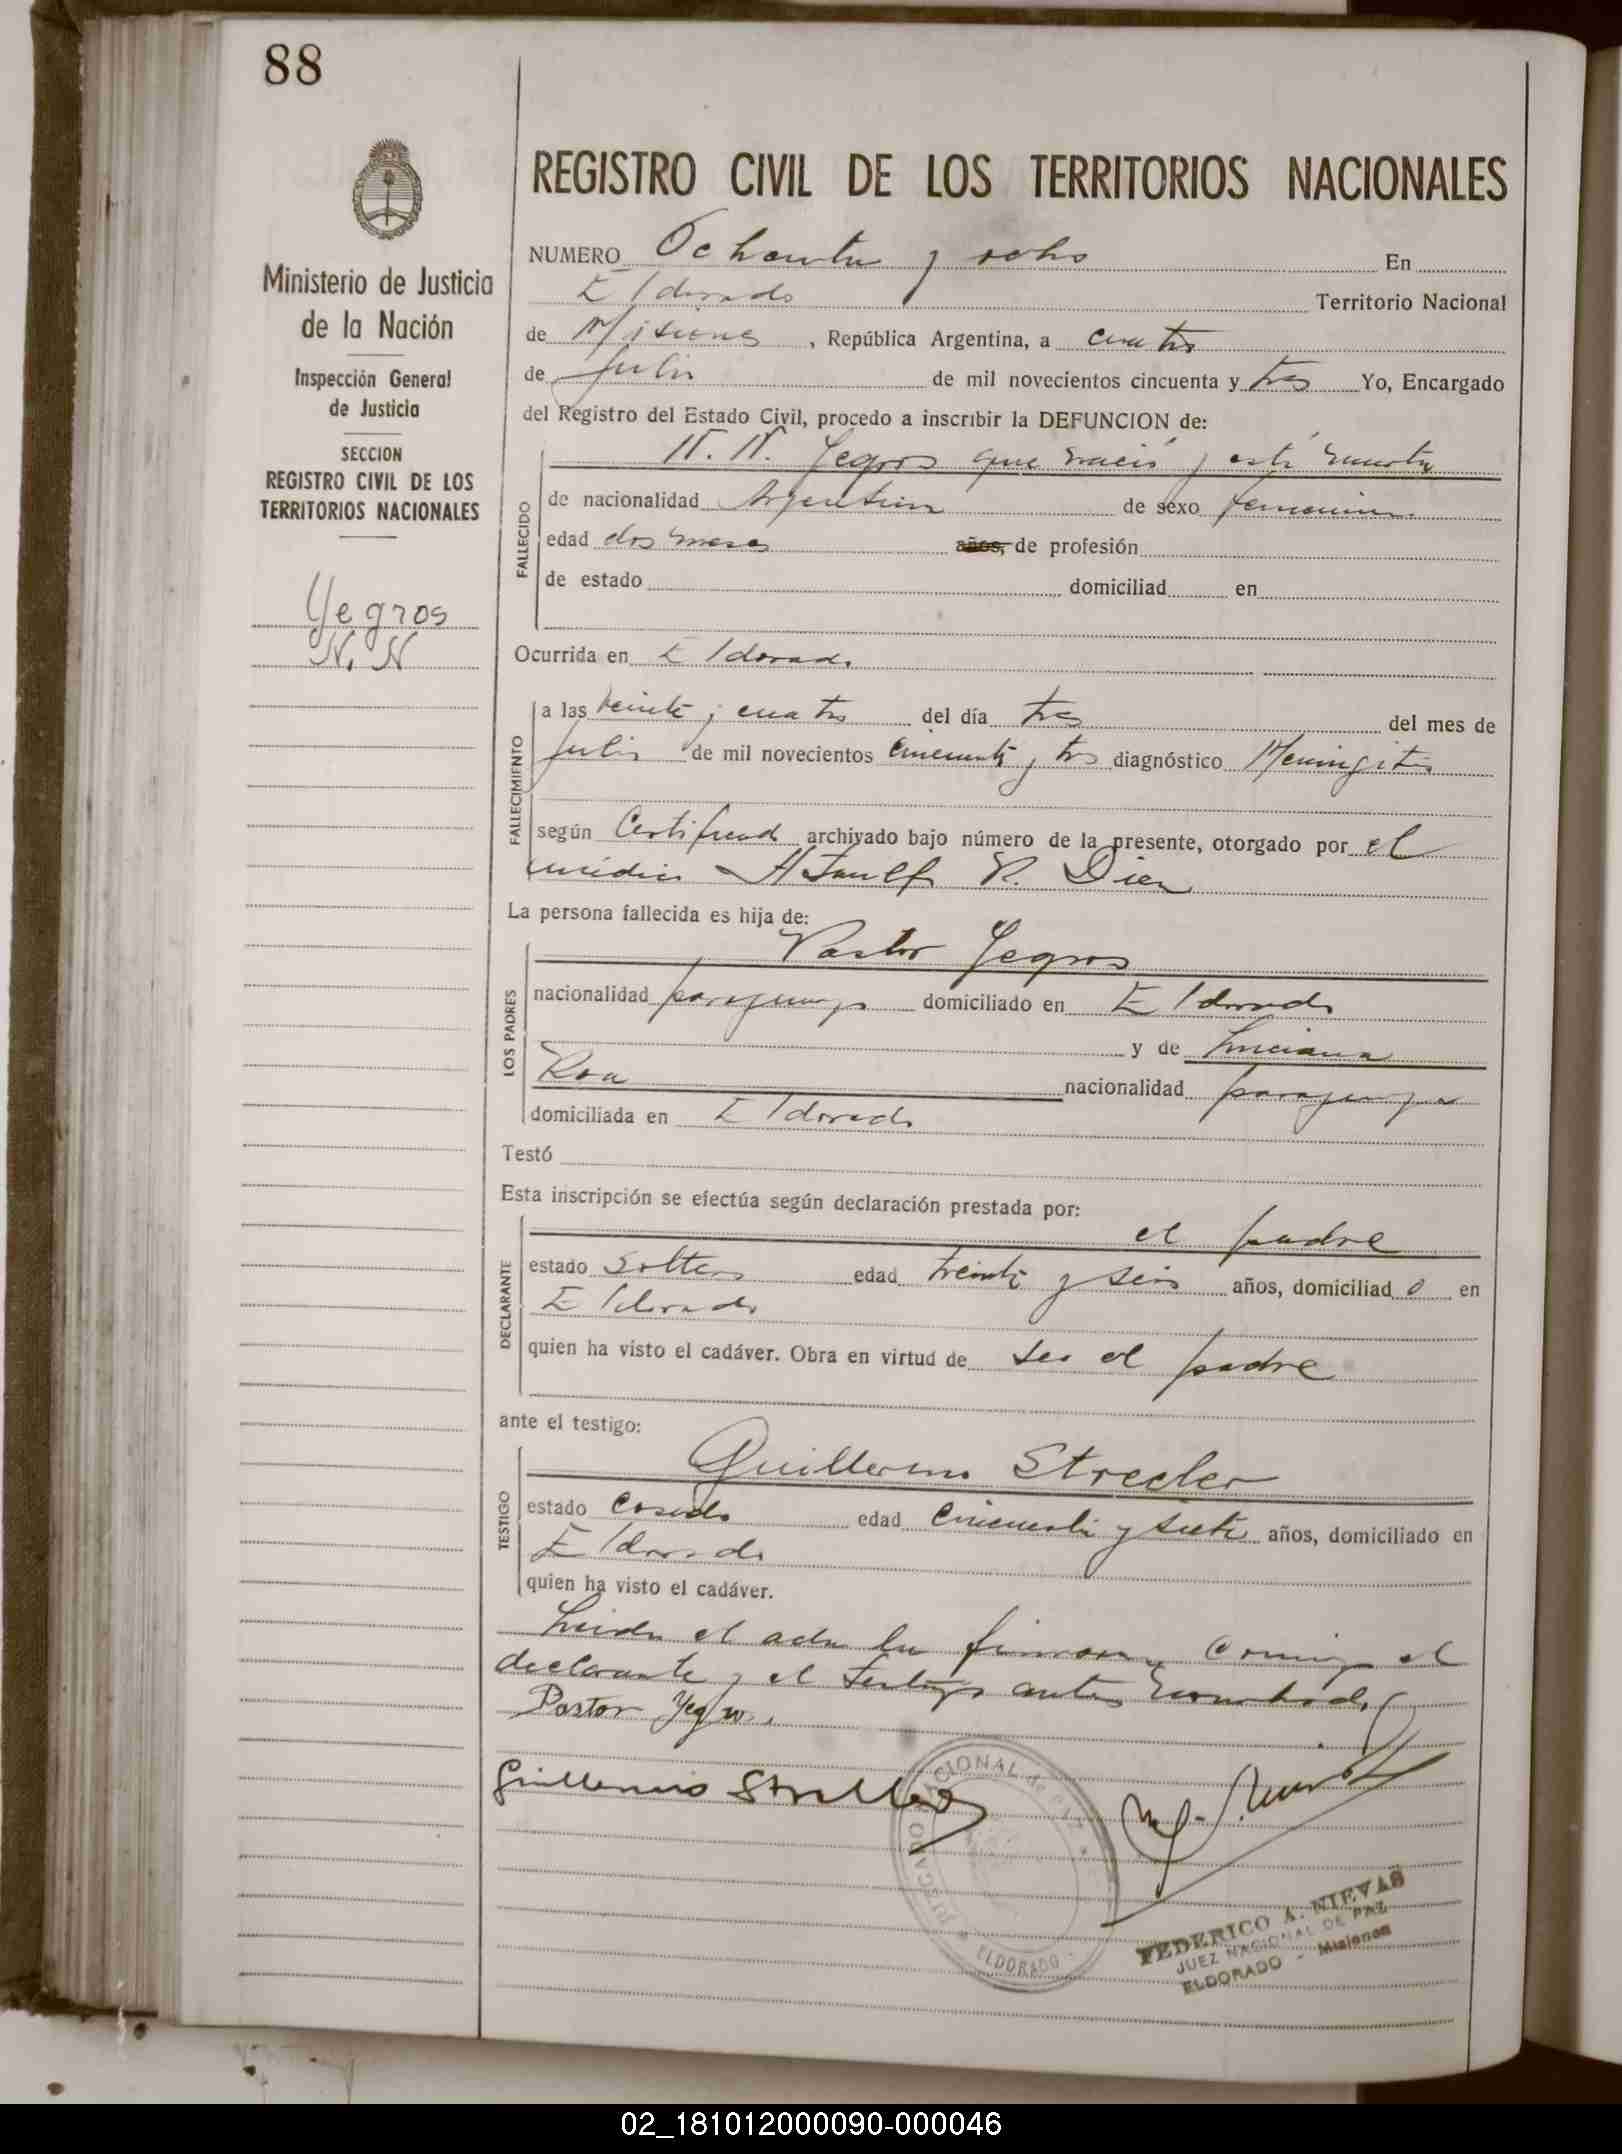 88
REGISTRO CIVIL DE LOS TERRITORIOS NACIONALES
Ministerio de Justicia
de la Nación
Inspección General
de Justicia
SECCION
REGISTRO CIVIL DE LOS
TERRITORIOS NACIONALES
Yegros
N. N
NUMERO Ochenta y ocho En
Eldorado Territorio Nacional
de Misiones, República Argentina, a cuatro
de Julio de mil novecientos cincuenta y tres Yo, Encargado
del Registro del Estado Civil, procedo a inscribir la DEFUNCION de:
N. N. Yegros que nació y está muerta
FALLECIDO
de nacionalidad Argentina de sexo femenino
edad dos meses años, de profesión
de estado domiciliad en
Ocurrida en Eldorado
FALLECIMIENTO
a las veinte y cuatro del día tres del mes de
Julio de mil novecientos cincuenta y tres diagnóstico Meningitis
según Certificado archivado bajo número de la presente, otorgado por el
médico R.
La persona fallecida es hija de:
Pastor Yegros
LOS PADRES
nacionalidad paraguayo domiciliado en Eldorado
y de Luciana
Roa nacionalidad paraguaya
domiciliada en Eldorado
Testó
Esta inscripción se efectúa según declaración prestada por:
el padre
DECLARANTE
estado soltero edad treinta y seis años, domiciliad o en
Eldorado
quien ha visto el cadáver. Obra en virtud de ser el padre
ante el testigo:
Guillermo Strecler
TESTIGO
estado casado edad cincuenta y siete años, domiciliado en
Eldorado
quien ha visto el cadáver.
Leida el acta la firman conmigo el
declarante y el testigo antes nombrado
Pastor Yegros
Guillermo
JUZGADO NACIONAL de PAZ
ELDORADO
FEDERICO A. NIEVAS
JUEZ NACIONAL DE PAZ
ELDORADO - Misiones
02_181012000090-000046